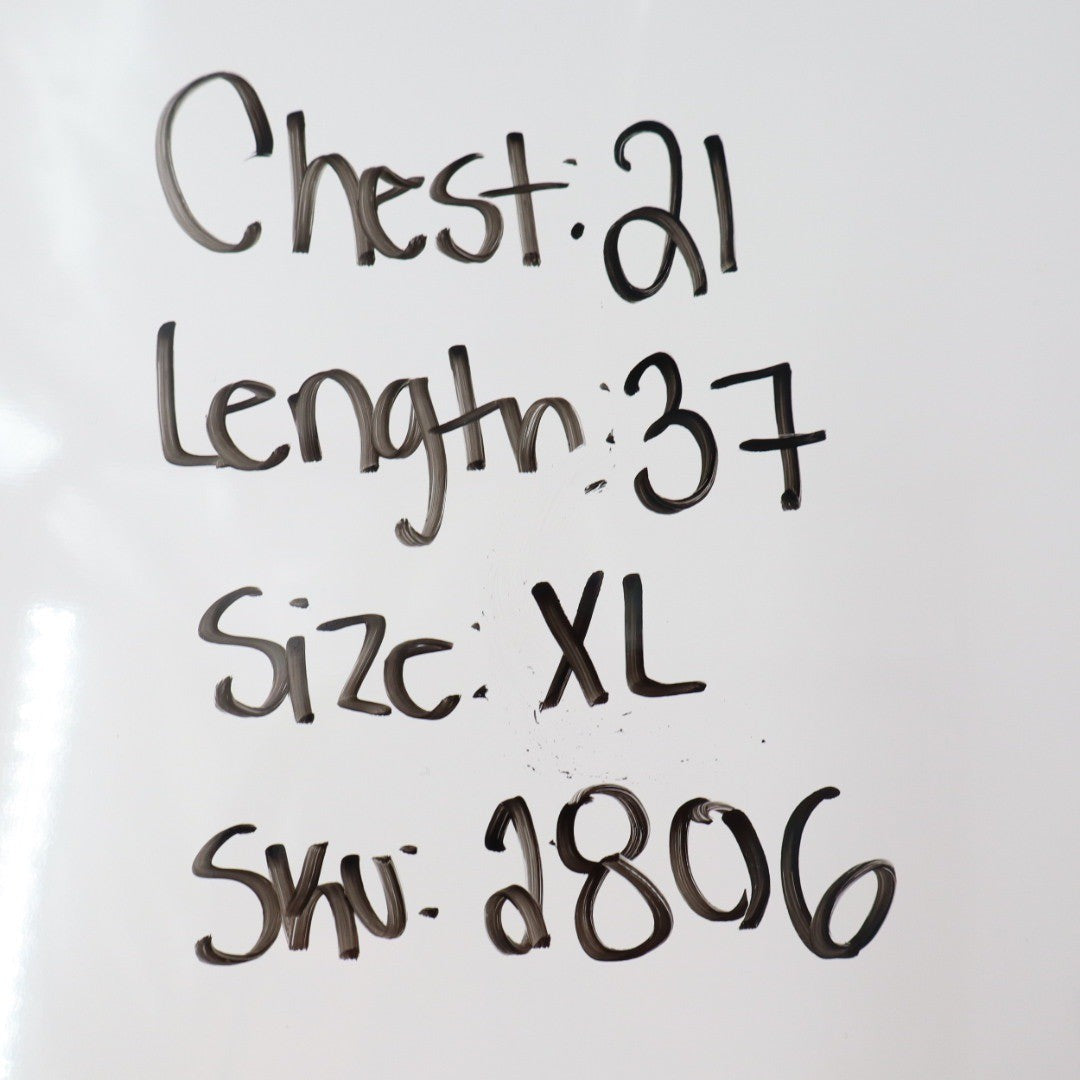 Chest: 21
Length: 37
Size: XL
Sku: 2806